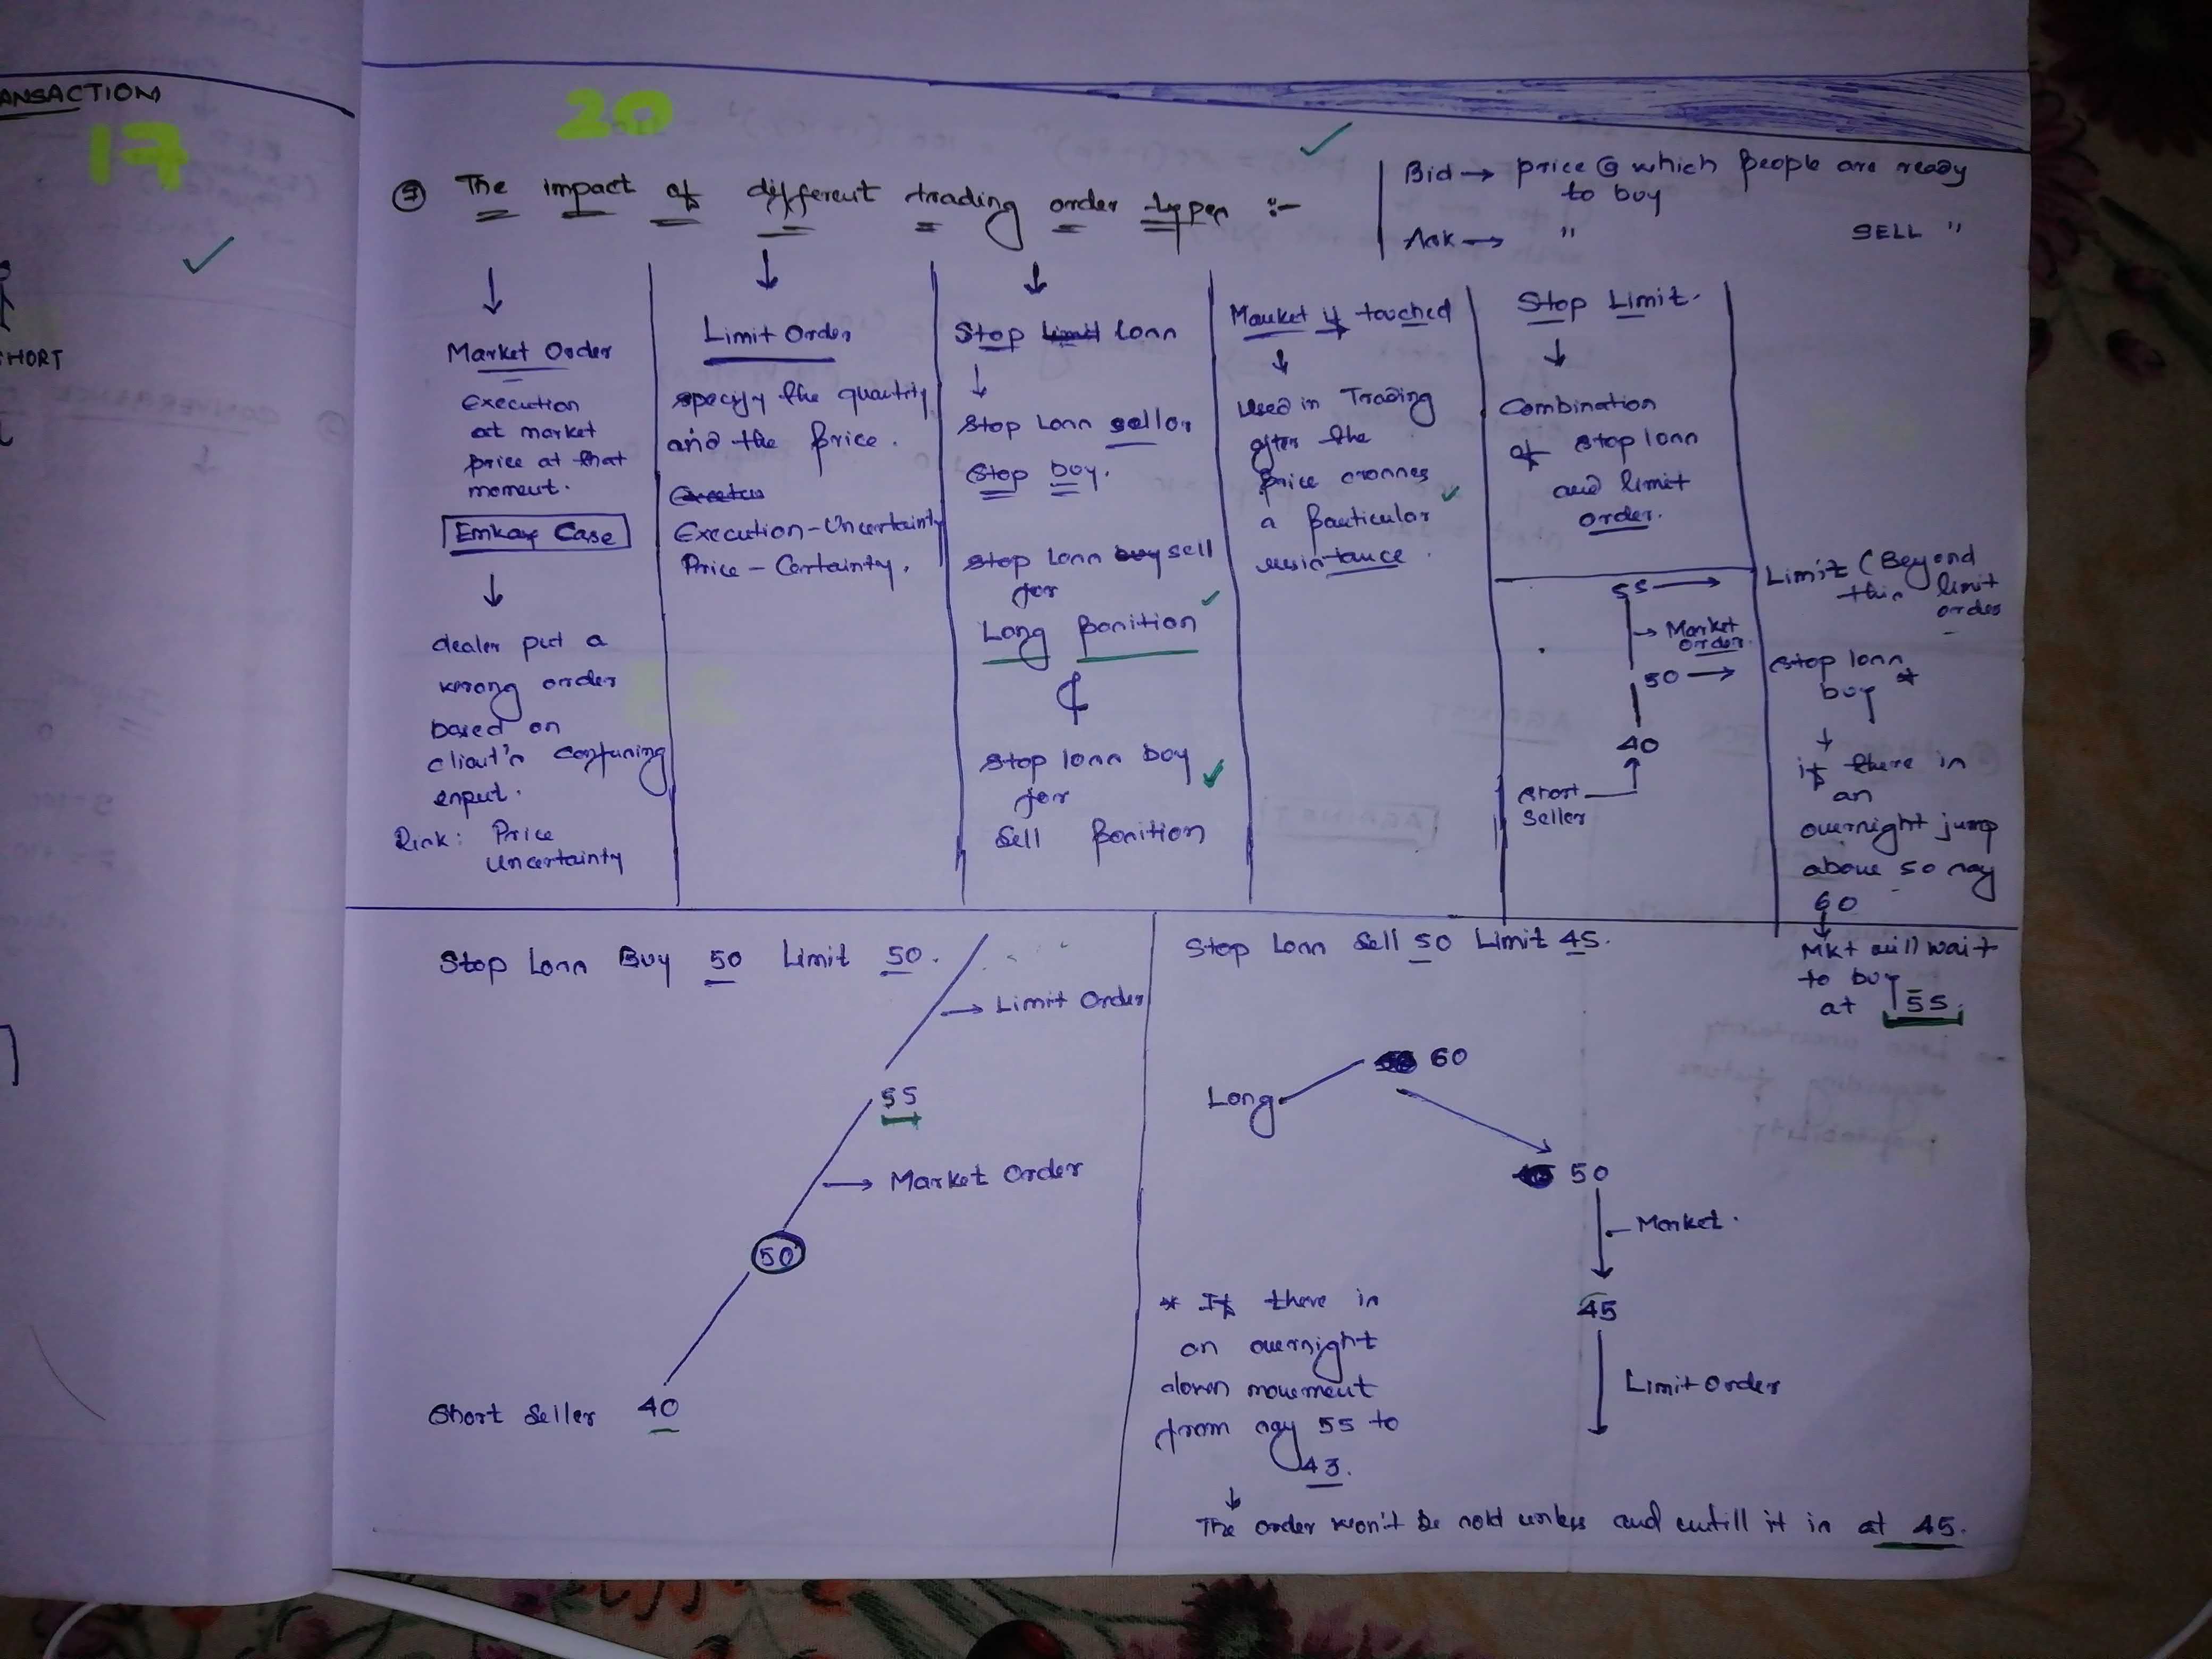 ANSACTION
17
HORT
20
The impact of different trading order types :-
Bid → price @ which people are ready
to buy
Ask → " SELL "
Market Order
Execution
at market
price at that
moment.
Emkay Case
dealer put a
wrong order
based on
client's confusing
input.
Risk: Price
Uncertainty
Limit Order
specify the quantity
and the price.
Execution - Uncertainty
Price - Certainty.
Stop loss
Stop Loss sell or
Stop buy.
Stop Loss sell
for
Long Position
&
Stop loss buy
for
Sell Position
Market if touched
Used in Trading
after the
price crosses
a particular
resistance.
Stop Limit.
Combination
of stop loss
and limit
order.
55 → Limit (Beyond
this limit
order
→ Market
order.
50 → Stop loss
buy *
40
Short
Seller
if there is
an
overnight jump
above 50 say
60
Mkt will wait
to buy
at 55.
Stop Loss Buy 50 Limit 50.
→ Limit Order
55
→ Market Order
50
Short Seller 40
Stop Loss Sell 50 Limit 45.
60
Long
50
Market.
45
Limit Order
* If there is
an overnight
down movement
from say 55 to
43.
The order won't be sold unless and untill it is at 45.